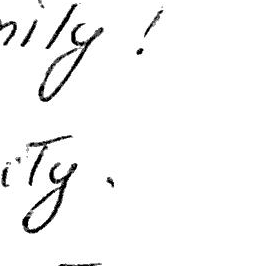 mily!
ity.